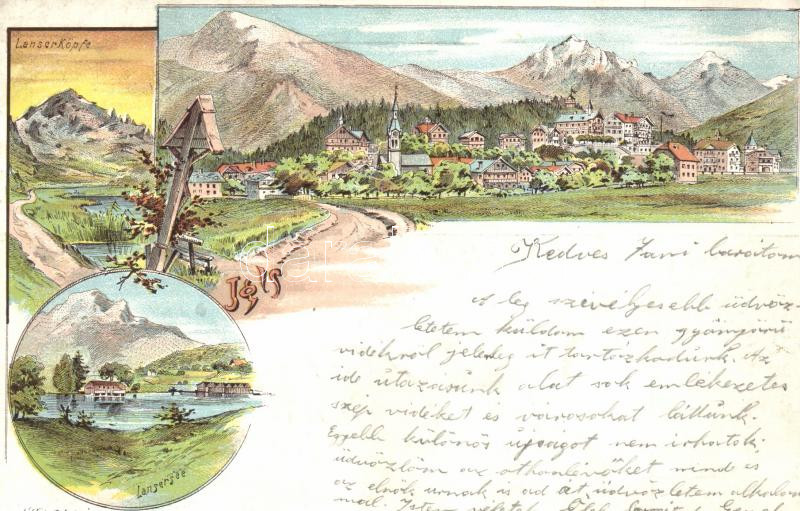 Lanserköpfe
Igls
Lansersee
Kedves Jani barátom
A leg szivélyesebb üdvöz-
letetem küldom ezen gyönyörü
vidékről jelenleg it tartózkodunk. Az
ide útazásunk alat sok emlékezetes
szép vidéket és városokat láttunk.
Eggebb különös újságot nem irhatok
üdvözlöm az othonlévőket mind és
az elnök urnak is ad át üdvözletem alkalom
mal. Isten